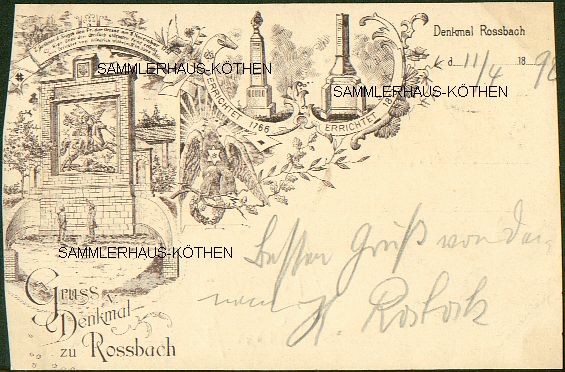 Denkmal Rossbach
d. 11/4 1892
SAMMLERHAUS-KÖTHEN
SAMMLERHAUS-KÖTHEN
ERRICHTET 1766
ERRICHTET 18
SAMMLERHAUS-KÖTHEN
Besten Gruß von Dei-
nem H. Rostock
Gruss v.
Denkmal
zu Rossbach